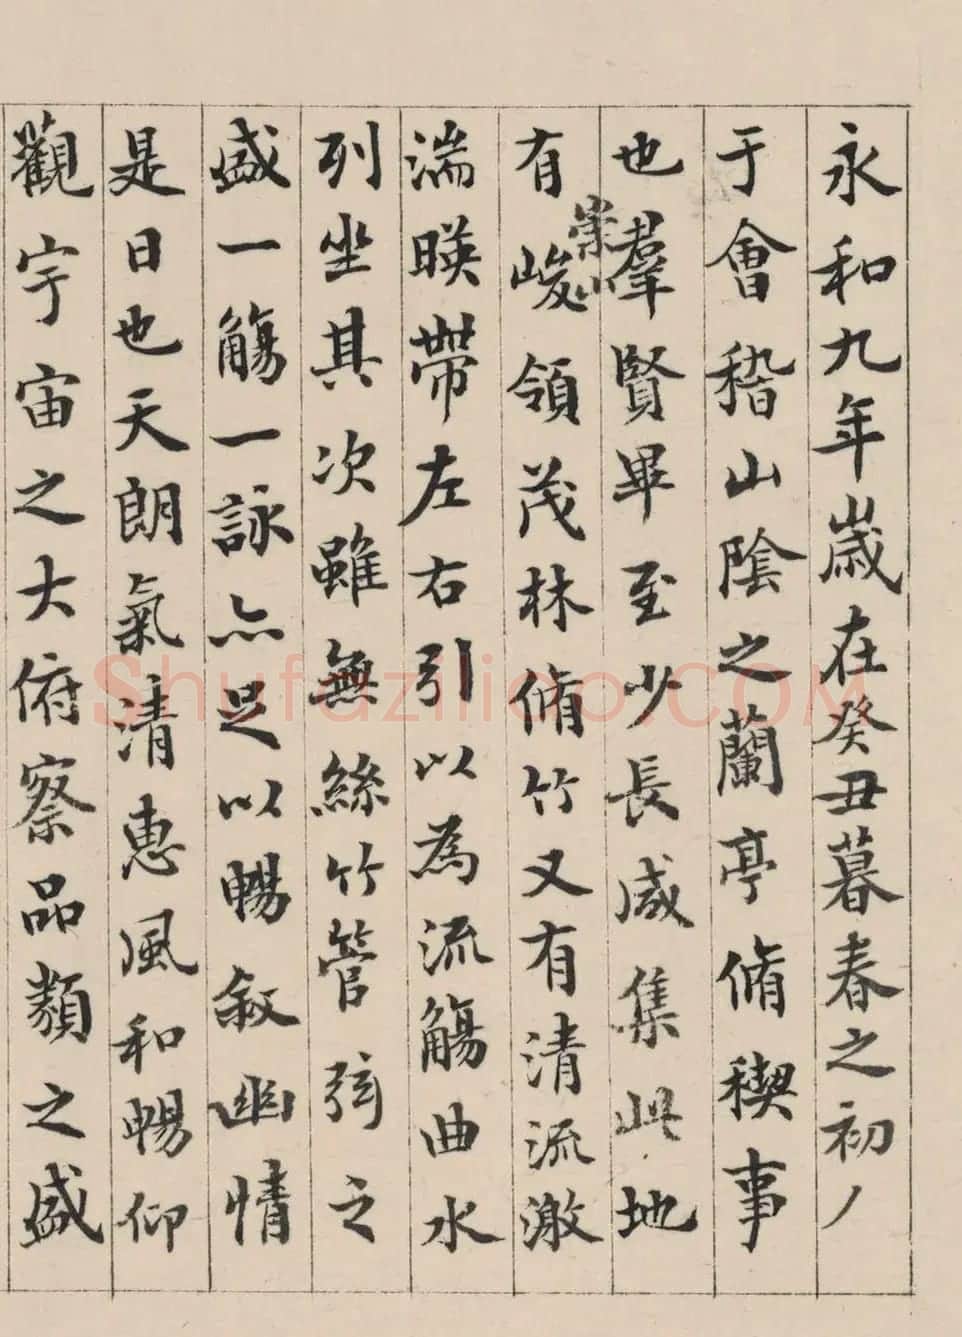 永和九年歲在癸丑暮春之初丿
于會稽山陰之蘭亭脩稧事
也羣賢畢至少長咸集此地
有崇山峻領茂林脩竹又有清流激
湍暎帶左右引以為流觴曲水
列坐其次雖無絲竹管弦之
盛一觴一詠亦足以暢敘幽情
是日也天朗氣清惠風和暢仰
觀宇宙之大俯察品類之盛
Shufaziliao.COM